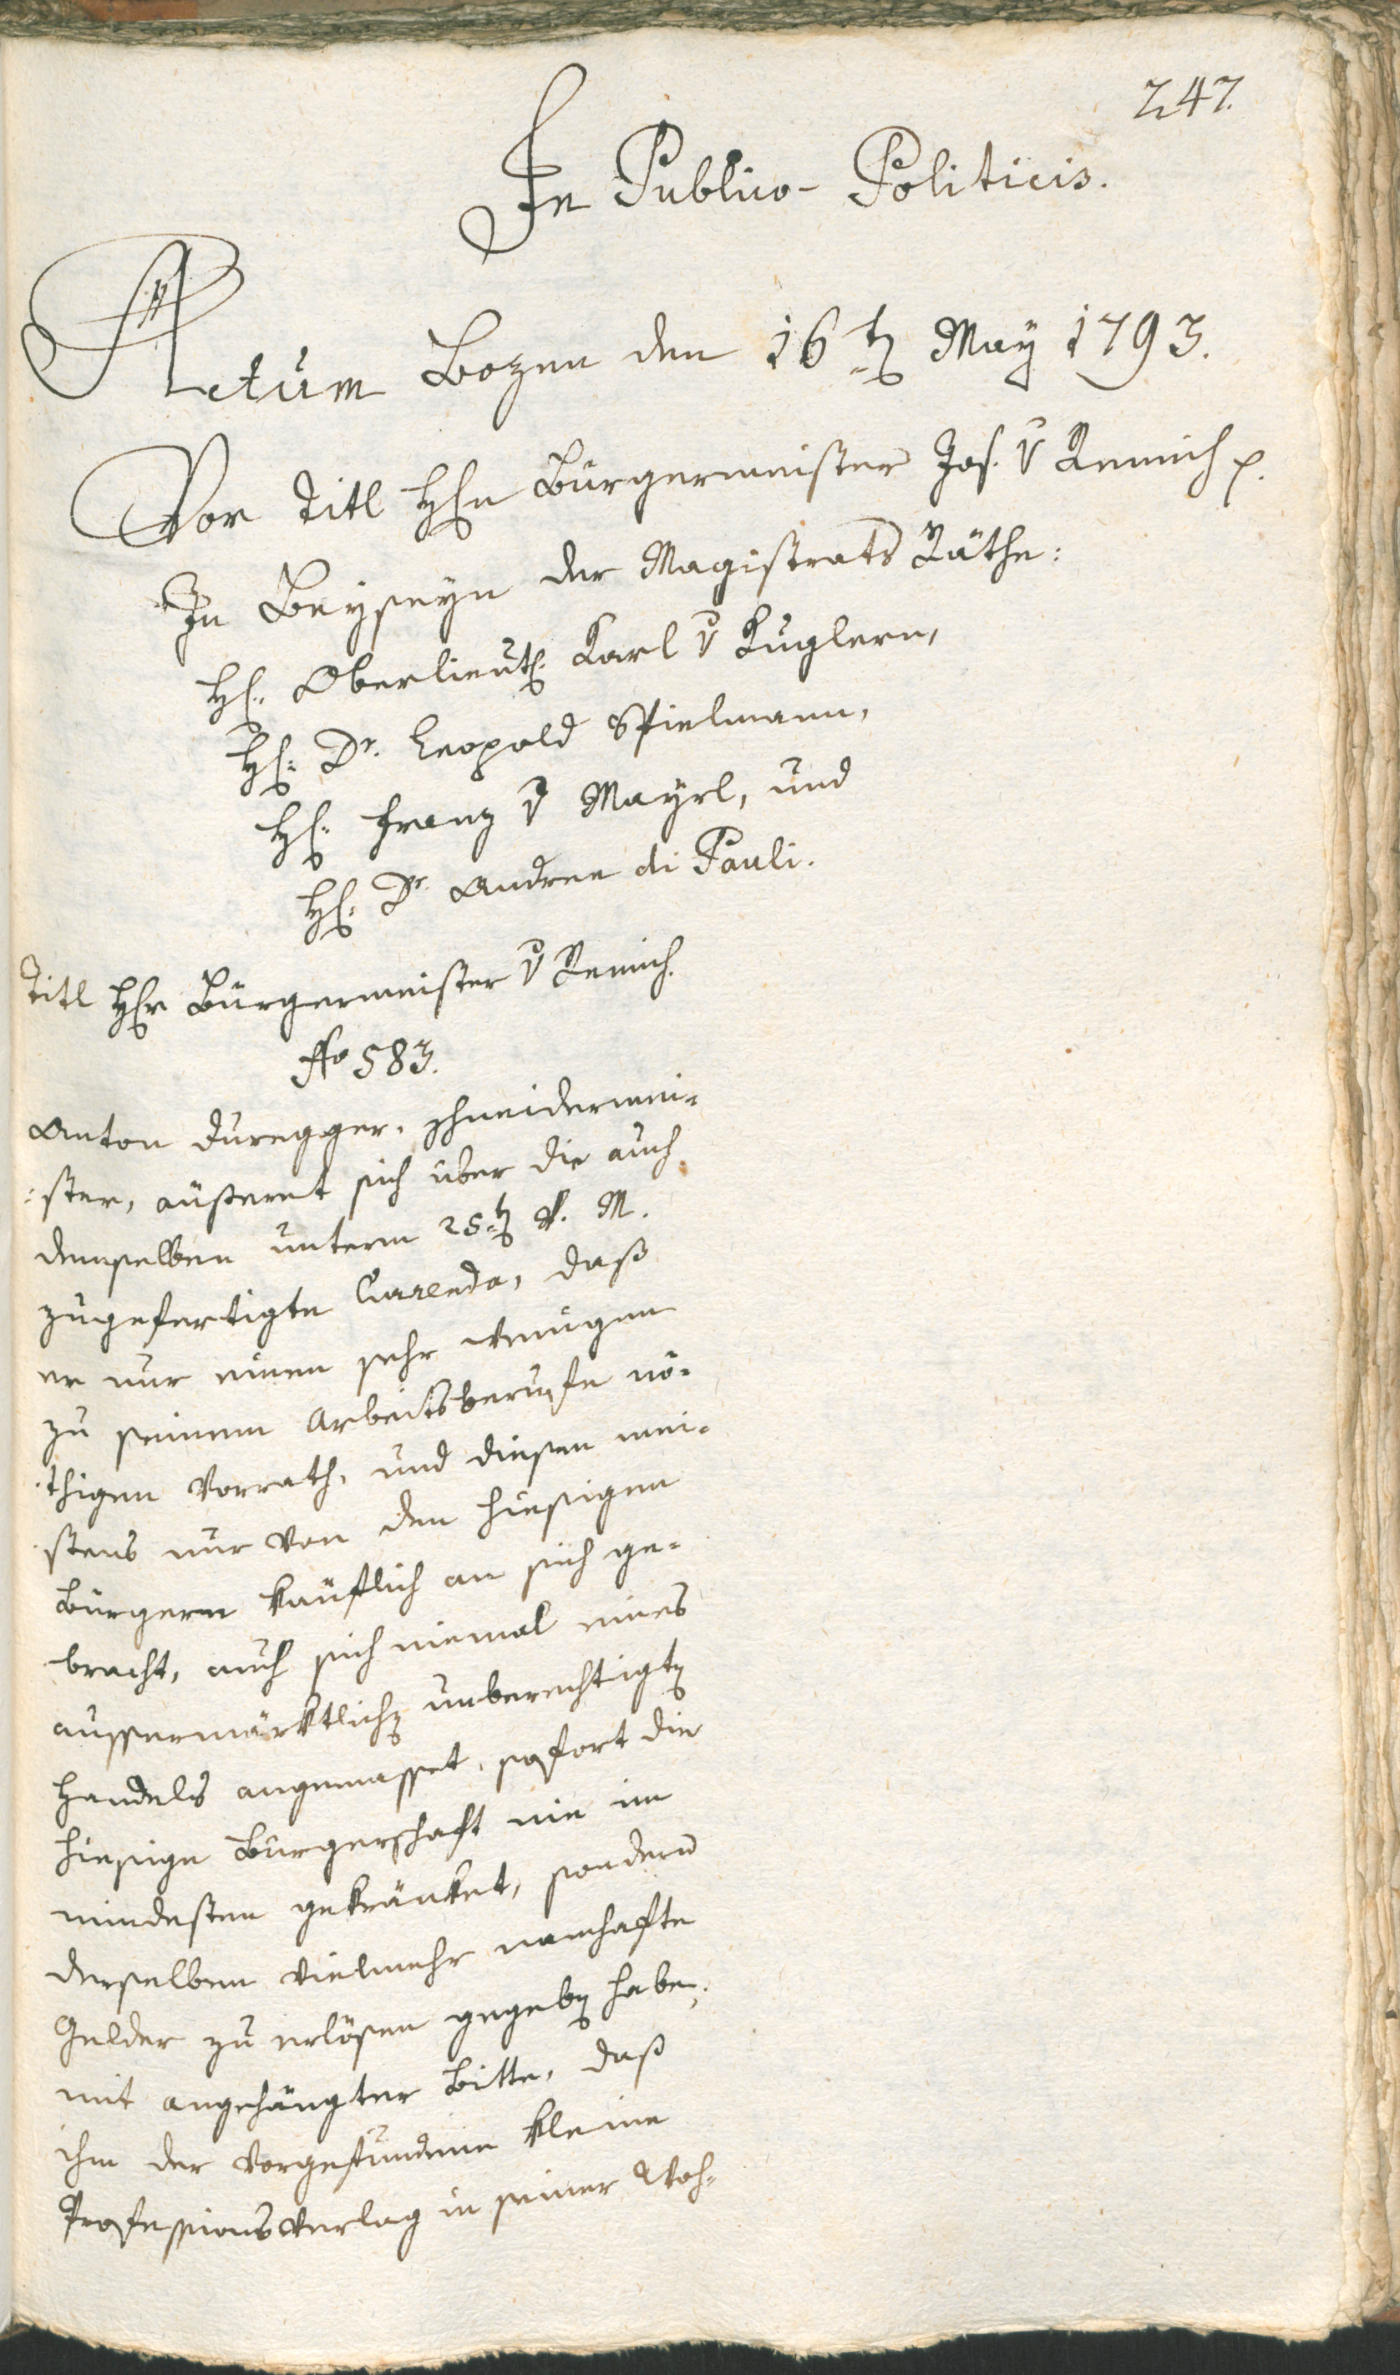 247.
In Publico-Politicis.
Actum Bozen den 16tn May 1793.
Vor Titl Hhn Bürgermeister Jos. v Remich p.
In Beyseyn der Magistrats Räthe:
H: Oberlieut: Karl v Kuglern,
H: Dr. Leopold Spielmann,
H: Franz v Mayrl, und
H: Dr Andree di Pauli.
Titl Hhr Bürgermeister v Remich.
No 583.
Anton Duregger, Schneidermei-
:ster, äußeret sich über die auch
demselben unterm 25tn v. M.
zugefertigte Currenda, daß
er nur einen sehr wenigen
zu seinem Arbeitsberufe nö-
thigen Vorrath, und diesen mei-
stens nur von den hiesigen
Bürgern käuflich an sich ge-
bracht, auch sich niemal eines
aussermärktlichn unberechtigtn
Handels angemasset, sofort die
hiesige Bürgerschaft nie im
mindesten gekränket, sondern
derselben vielmehr namhafte
Gelder zu erlösen gegebn habe,
mit angehängter Bitte, daß
ihm der vorgefundene kleine
Professionsverlag in seiner Woh-